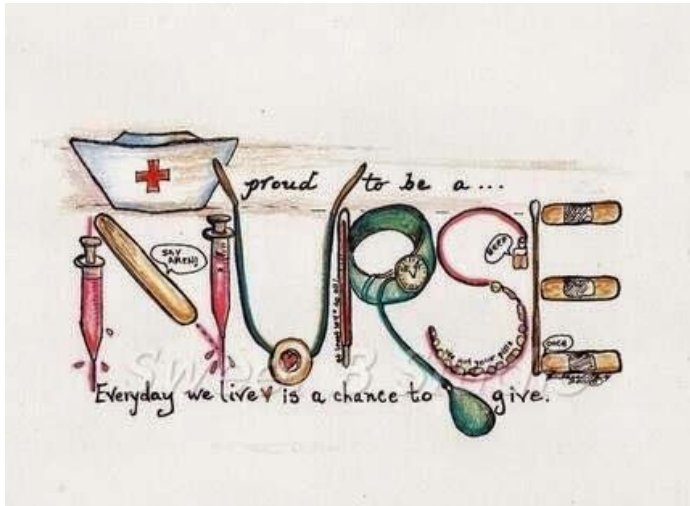 proud to be a...
NURSE
SAY AHEM!
BEEP
OUCH
Everyday we live is a chance to give.